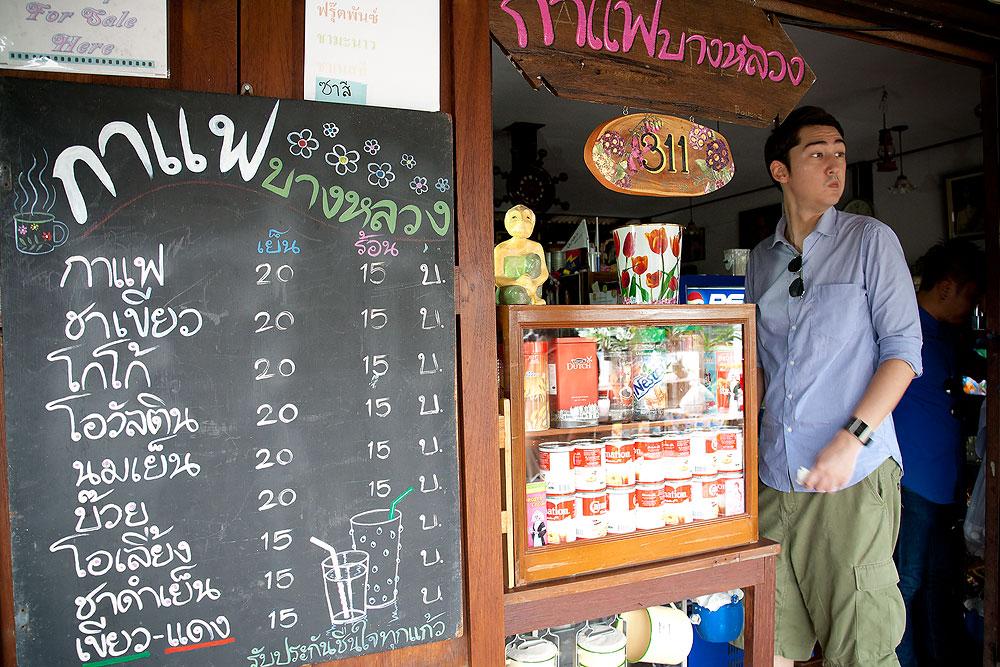 For Sale
Here
ฟรุ๊ตพันช์
ชามะนาว
ชาสี
กาแฟ
บางหลวง
เย็น ร้อน
กาแฟ 20 15 บ.
ชาเขียว 20 15 บ.
โกโก้ 20 15 บ.
โอวัลติน 20 15 บ.
นมเย็น 20 15 บ.
บ๊วย 20 15 บ.
โอเลี้ยง 15 บ.
ชาดำเย็น 15 บ.
เขียว-แดง 15 บ.
รับประกันชื่นใจทุกแก้ว
กาแฟบางหลวง
311
DUTCH